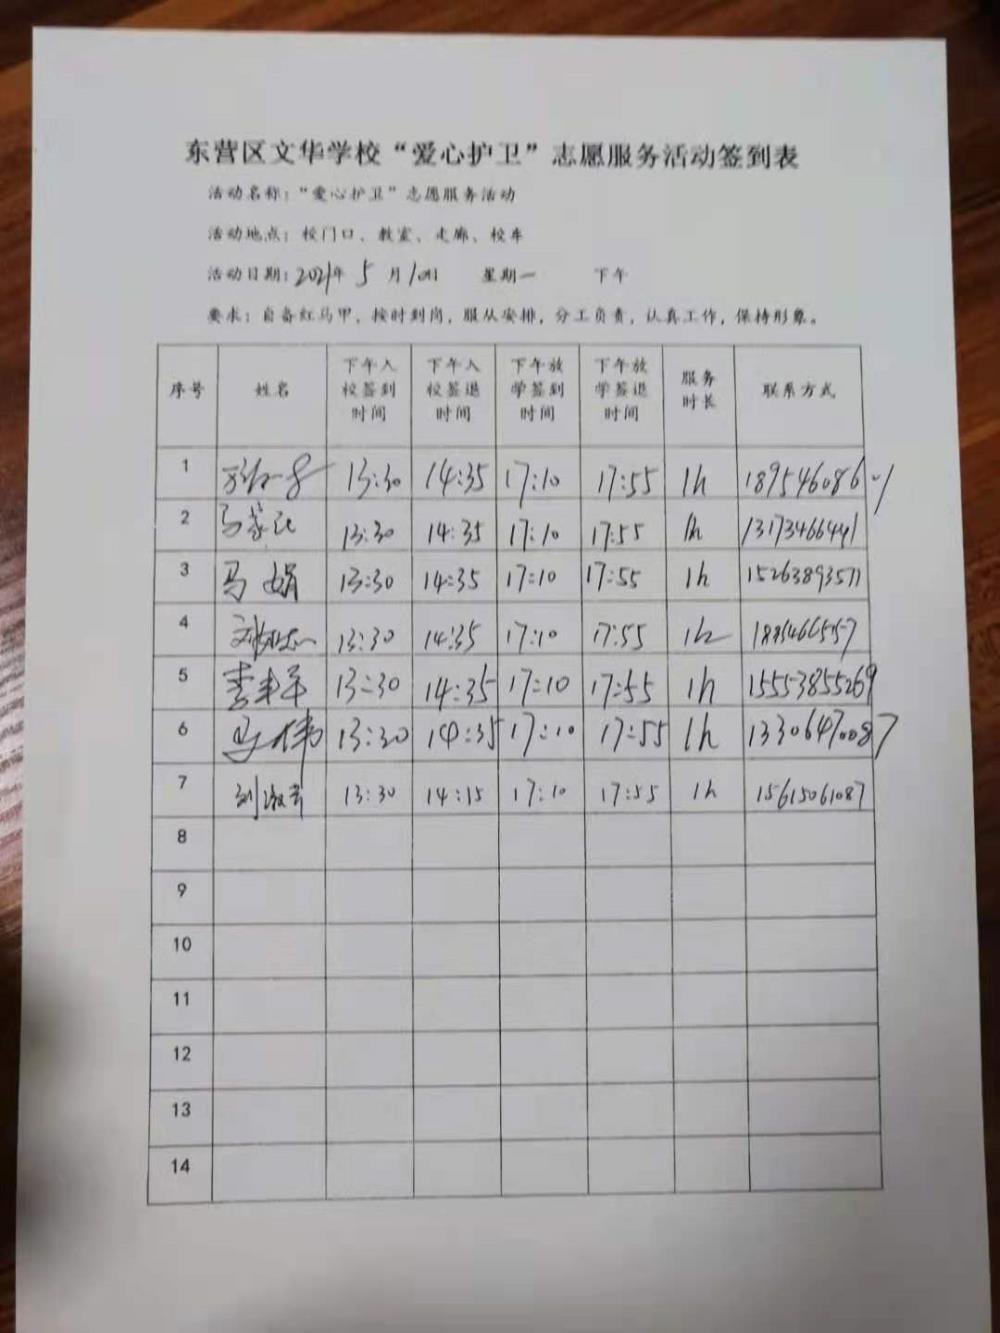 东营区文华学校“爱心护卫”志愿服务活动签到表
活动名称：“爱心护卫”志愿服务活动
活动地点：校门口、教室、走廊、校车
活动日期：2021年 5 月10日 星期一 下午
要求：自备红马甲，按时到岗，服从安排，分工负责，认真工作，保持形象。
序号 姓名 下午入校签到时间 下午入校签退时间 下午放学签到时间 下午放学签退时间 服务时长 联系方式
1 13:30 14:35 17:10 17:55 1h
2 13:30 14:35 17:10 17:55 1h 13173466441
3 马娟 13:30 14:35 17:10 17:55 1h 15263893571
4 13:30 14:35 17:10 17:55 1h
5 13:30 14:35 17:10 17:55 1h 15553855269
6 马伟 13:30 14:35 17:10 17:55 1h 13306470087
7 13:30 14:15 17:10 17:55 1h 15615061087
8
9
10
11
12
13
14